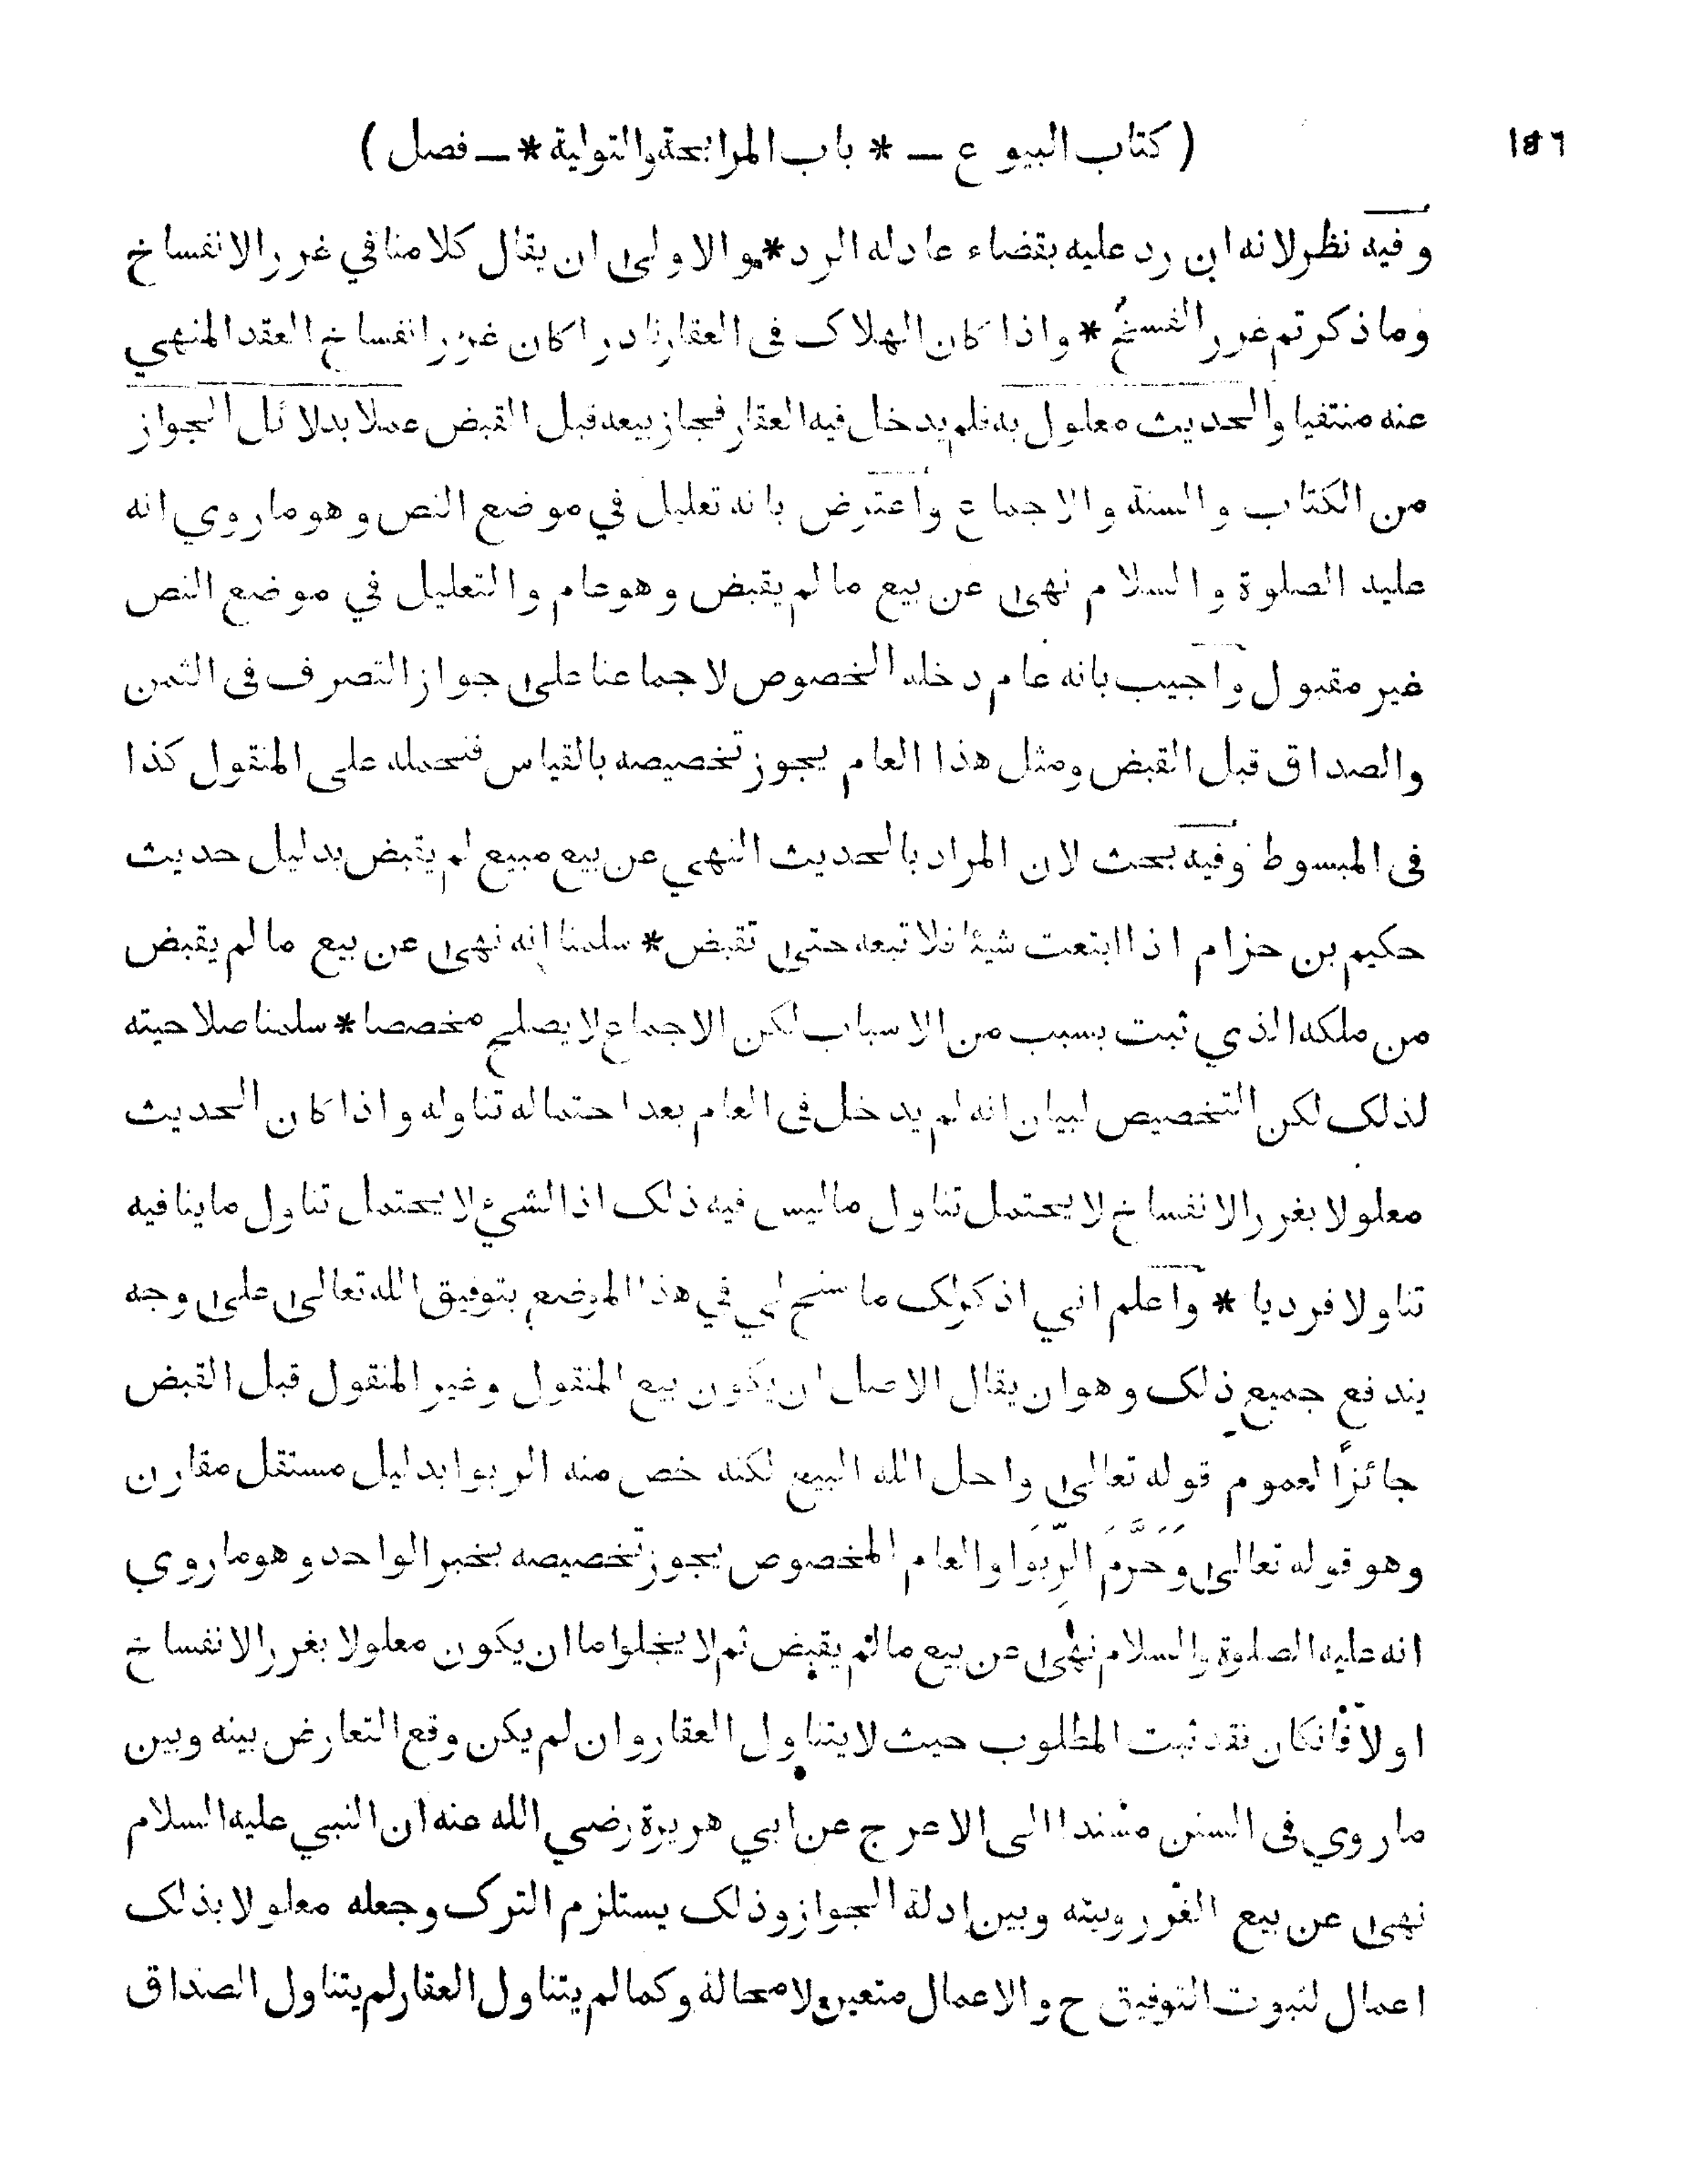 ١٤٦
( كتاب البيوع — * باب المرابحة والتولية * — فصل )
وفيه نظر لانه ان رد عليه بقضاء عاد له الرد * والاولى ان يقال كلامنا في غرر الانفساخ
وما ذكرتم غرر الفسخ * واذا كان الهلاك فى العقار نادرا كان غرر انفساخ العقد المنهي
عنه منتفيا والحديث معلول به فلم يدخل فيه العقار فجاز بيعه قبل القبض عملا بدلائل الجواز
من الكتاب والسنة والاجماع واعترض بانه تعليل في موضع النص وهو ما روي انه
عليه الصلوة والسلام نهى عن بيع ما لم يقبض وهو عام والتعليل في موضع النص
غير مقبول واجيب بانه عام دخله الخصوص لاجماعنا على جواز التصرف فى الثمن
والصداق قبل القبض ومثل هذا العام يجوز تخصيصه بالقياس فنحمله على المنقول كذا
فى المبسوط وفيه بحث لان المراد بالحديث النهي عن بيع مبيع لم يقبض بدليل حديث
حكيم بن حزام اذا ابتعت شيئا فلا تبعه حتى تقبض * سلمنا انه نهى عن بيع ما لم يقبض
من ملكه الذي ثبت بسبب من الاسباب لكن الاجماع لا يصلح مخصصا * سلمنا صلاحيته
لذلك لكن التخصيص لبيان انه لم يدخل فى العام بعد احتماله تناوله واذا كان الحديث
معلولا بغرر الانفساخ لا يحتمل تناول ما ليس فيه ذلك اذ الشيء لا يحتمل تناول ما ينافيه
تناولا فرديا * واعلم اني اذكر لك ما سنح لي في هذا الموضع بتوفيق الله تعالى على وجه
يندفع جميع ذلك وهو ان يقال الاصل ان يكون بيع المنقول وغير المنقول قبل القبض
جائزاً لعموم قوله تعالى واحل الله البيع لكنه خص منه الربوا بدليل مستقل مقارن
وهو قوله تعالى وَحَرَّمَ الرِّبَوا والعام المخصوص يجوز تخصيصه بخبر الواحد وهو ما روي
انه عليه الصلوة والسلام نهى عن بيع ما لم يقبض ثم لا يخلوا ما ان يكون معلولا بغرر الانفساخ
اولا فانكان فقد ثبت المطلوب حيث لا يتناول العقار وان لم يكن وقع التعارض بينه وبين
ما روي فى السنن مسندا الى الاعرج عن ابي هريرة رضي الله عنه ان النبي عليه السلام
نهى عن بيع الغرر وبينه وبين ادلة الجواز وذلك يستلزم الترك وجعله معلولا بذلك
اعمال لثبوت التوفيق ح والاعمال متعين لا محالة وكما لم يتناول العقار لم يتناول الصداق